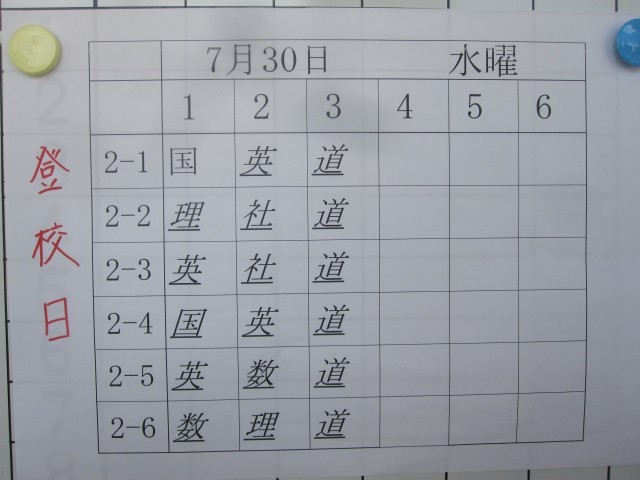 7月30日 水曜
1 2 3 4 5 6
2-1 国 英 道
2-2 理 社 道
2-3 英 社 道
2-4 国 英 道
2-5 英 数 道
2-6 数 理 道
登校日